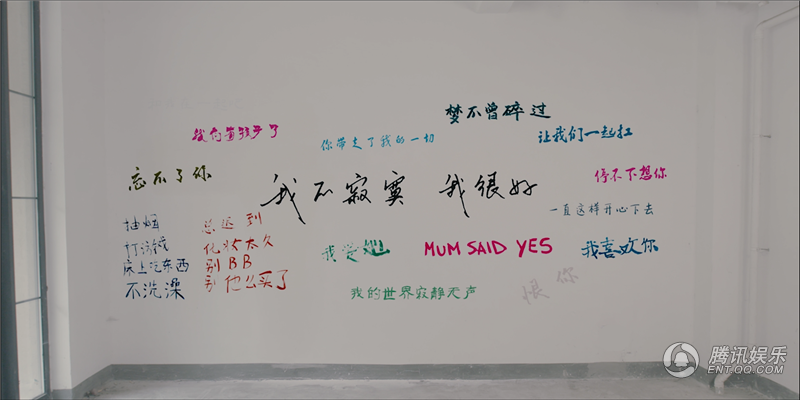 梦不曾碎过
我们
你带走了我的一切
让我们一起扛
忘不了你
我不寂寞 我很好
停不下想你
一直这样开心下去
抽烟
打游戏
床上吃东西
不洗澡
总迟到
化妆太久
别BB
别他么买了
我爱她
MUM SAID YES
我喜欢你
我的世界寂静无声
恨你
腾讯娱乐
ENT.QQ.COM